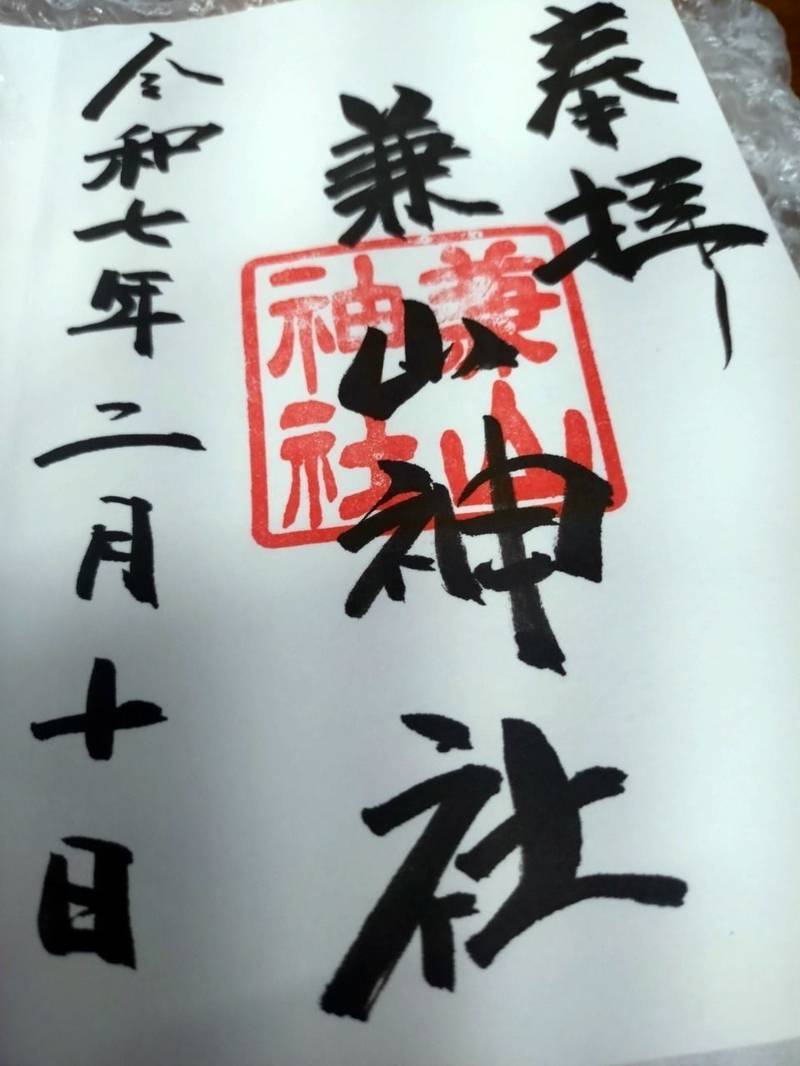 奉拝
兼山神社
兼山
神社
令和七年二月十日